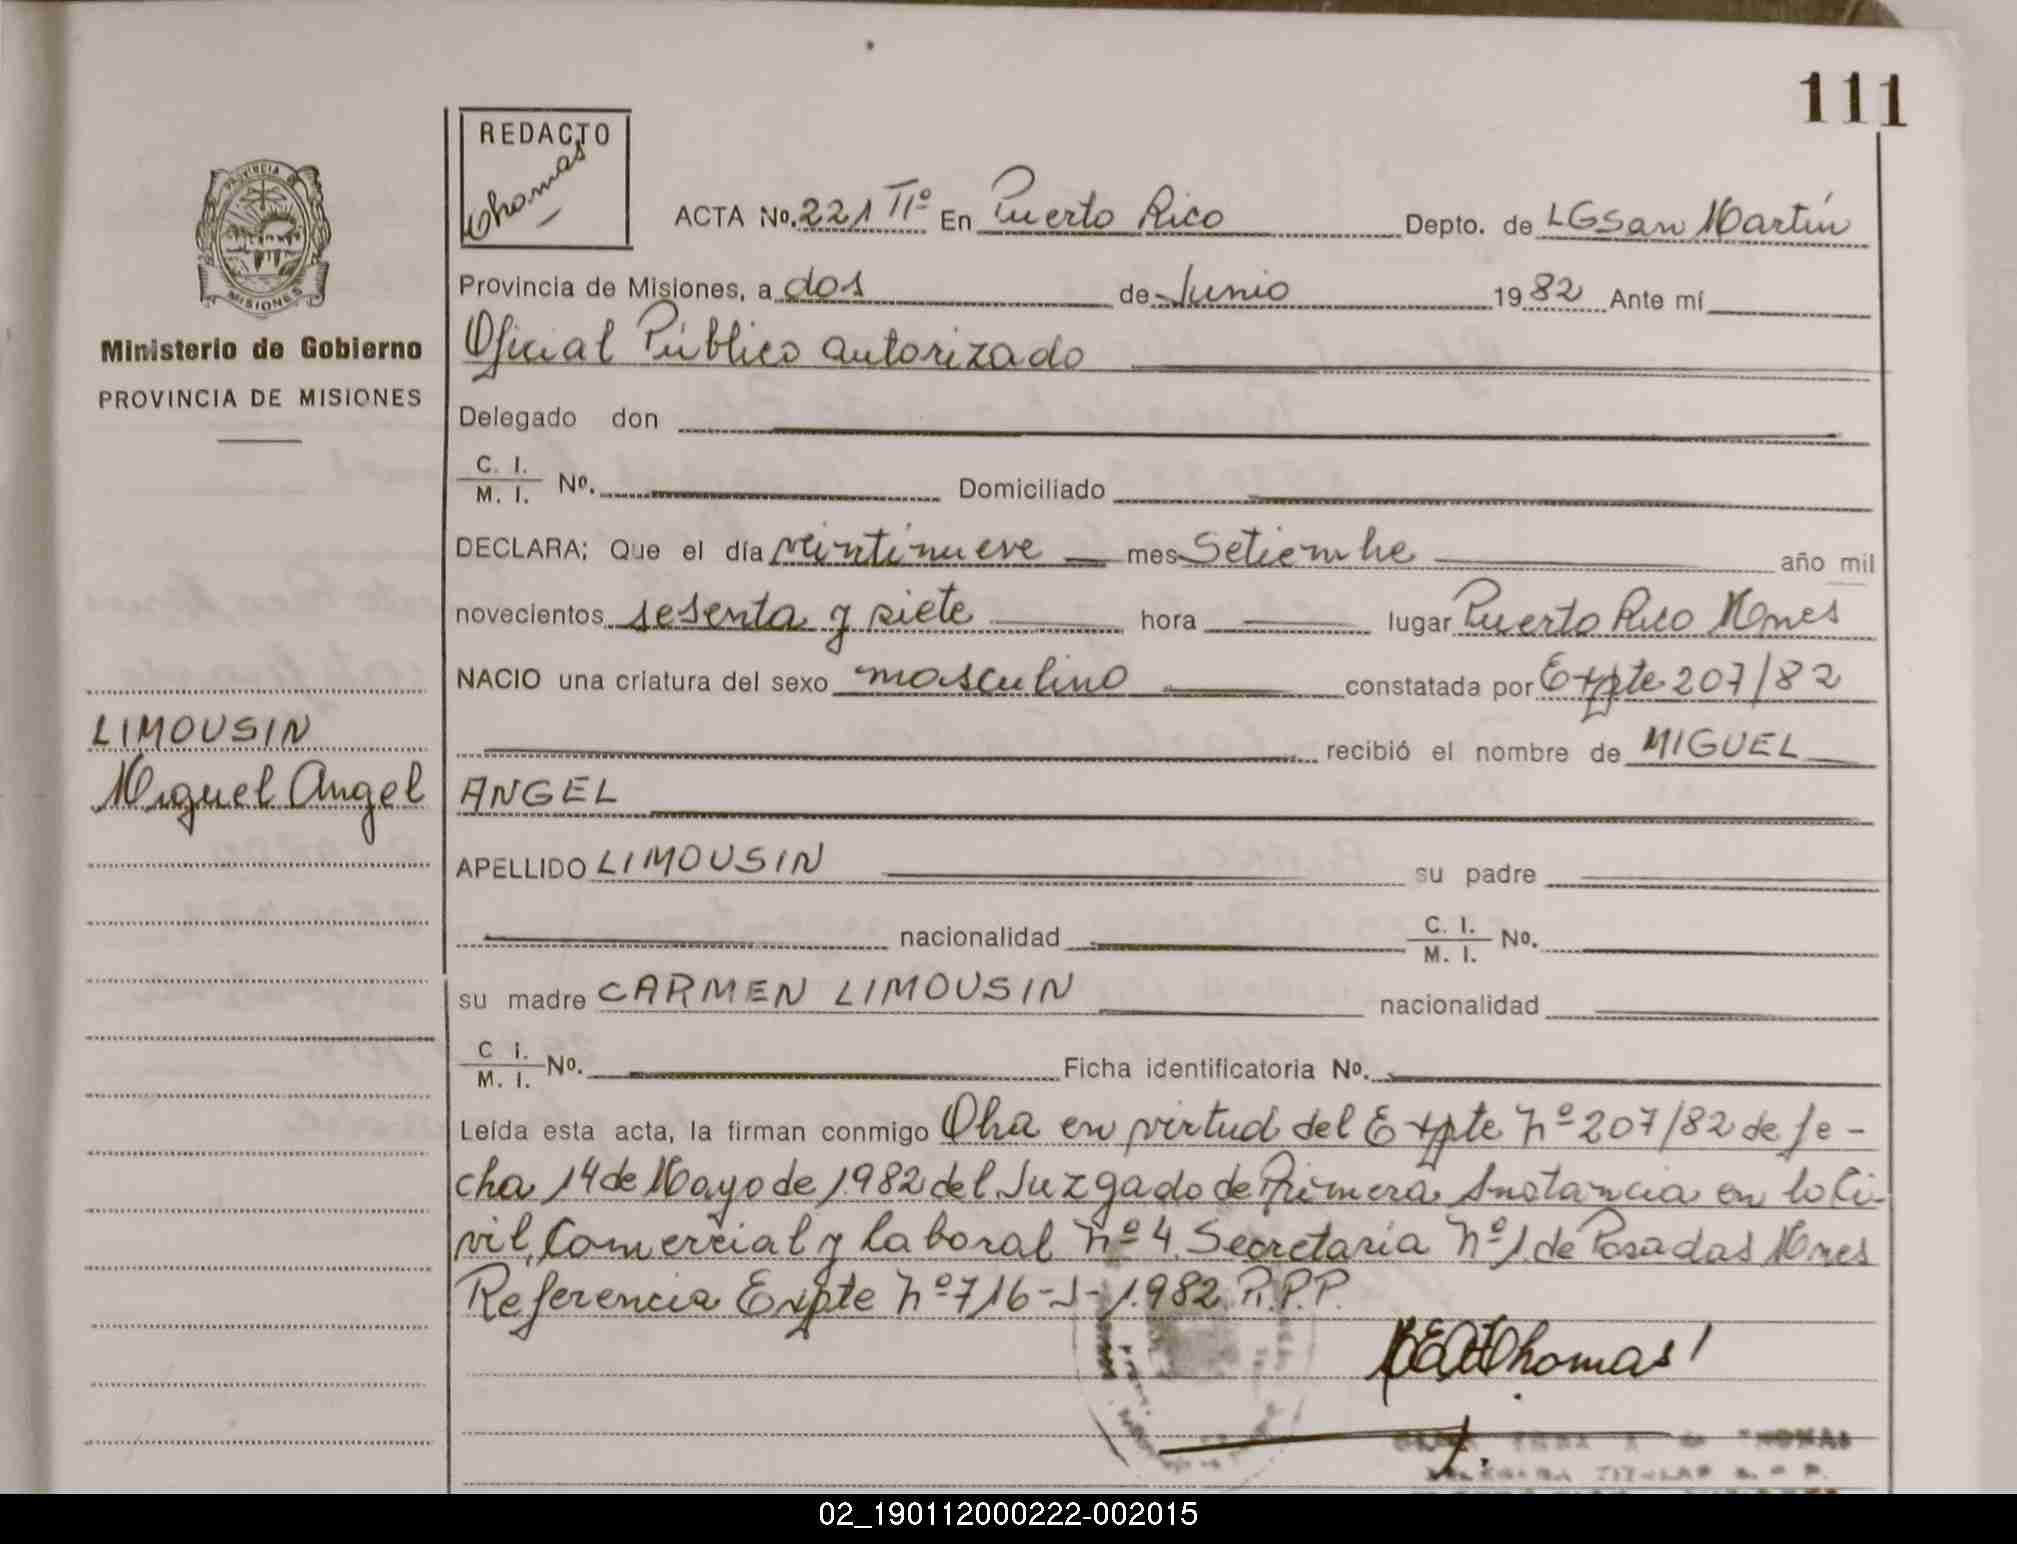 111
REDACTO
Thomas
ACTA No. 221 IIº En Puerto Rico Depto. de LGSan Martín
PROVINCIA DE
MISIONES
Ministerio de Gobierno
PROVINCIA DE MISIONES
Provincia de Misiones, a dos de Junio 1982 Ante mí
Oficial Público autorizado
Delegado don
C. I.
M. I. No. Domiciliado
DECLARA; Que el día veintinueve mes Setiembre año mil
novecientos sesenta y siete hora lugar Puerto Rico Mnes
NACIO una criatura del sexo masculino constatada por Expte 207/82
recibió el nombre de MIGUEL
ANGEL
LIMOUSIN
Miguel Angel
APELLIDO LIMOUSIN su padre
nacionalidad C. I.
M. I. No.
su madre CARMEN LIMOUSIN nacionalidad
C I.
M. I. No. Ficha identificatoria No.
Leída esta acta, la firman conmigo Oha en virtud del Expte Nº 207/82 de fe-
cha 14 de Mayo de 1982 del Juzgado de Primera Instancia en lo Ci-
vil, Comercial y laboral Nº 4 Secretaría Nº 1 de Posadas Mnes
Referencia Expte Nº 716-J-1982 R.P.P.
Thomas
02_190112000222-002015